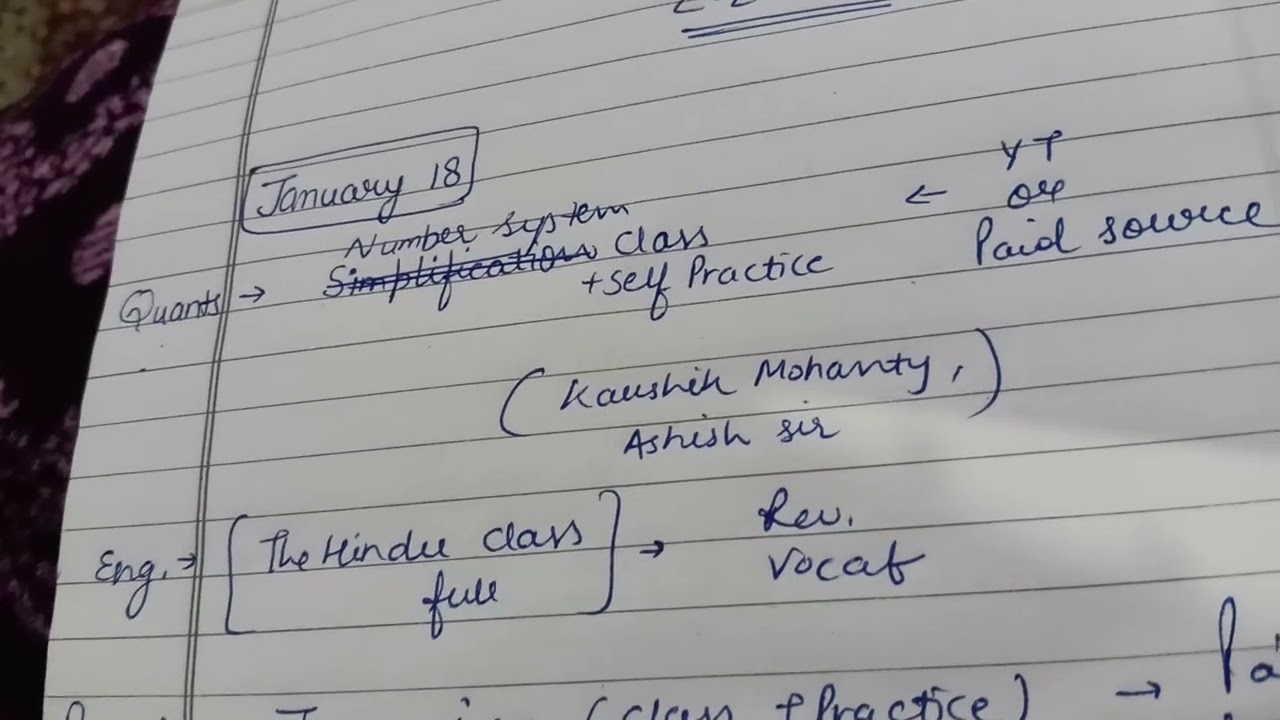 January 18
YT
or
Paid source
←
Number system
Quants → Simplification Class
+ Self Practice
(Kaushik Mohanty,)
Ashish sir
Eng. → [The Hindu class full] → Rev.
Vocab
(class + Practice) →